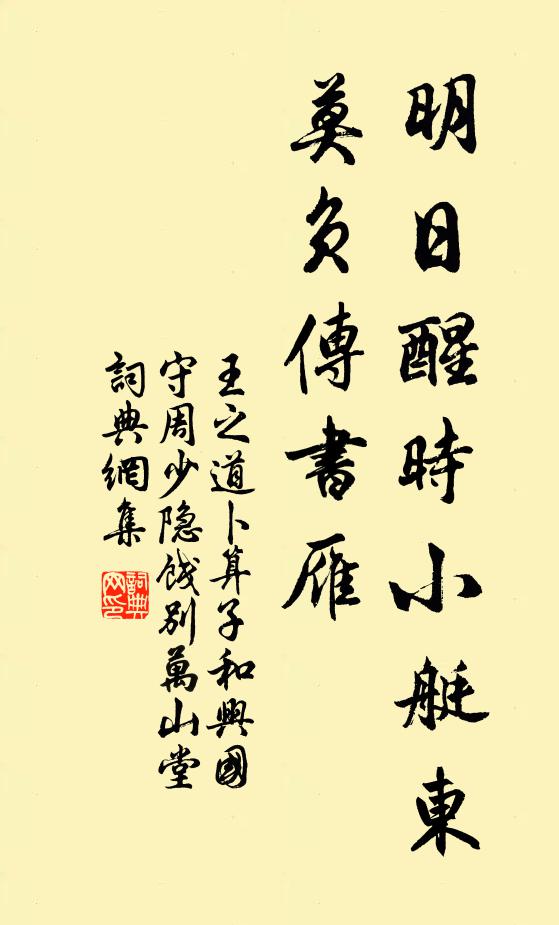 明日醒時小艇東
莫負傳書雁
王之道卜算子和興國
守周少隐餞别萬山堂
詞典網集
詞典
网印